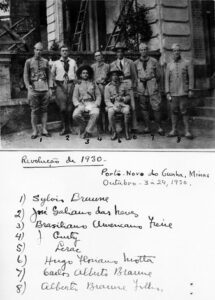 1 2 3 4 5 6 7 8
Revolução de 1930-
Porto-Novo do Cunha, Minas
Outubro - 3 a 24, 1930.
1) Sylvio Braune
2) José Galiano das Neves
3) Brasiliano Americano Freire
4)
5)
6) Hugo Floriano Motta
7) Carlos Alberto Braune
8) Alberto Braune Filho